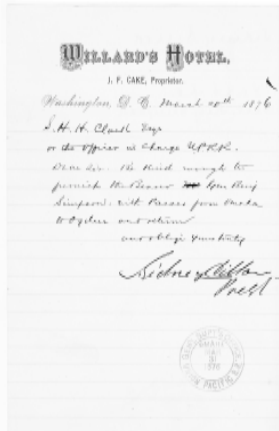 WILLARD'S HOTEL,
J. F. CAKE, Proprietor.
Washington, D. C. March 20th 1876
S. H. H. Clark Esqr
or the Officer in Charge U.P.R.R.
Dear Sir. Be Kind enough to
furnish the Bearer
Simpson. with Passes from Omaha
to Ogden and return
and oblige Yours truly
Sidney Dillon
Prest